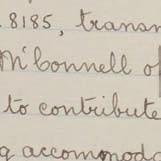 . 8185, transm
McConnell of
to contribute
g accomoda